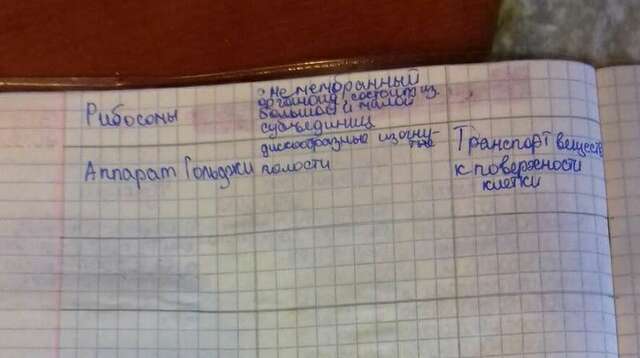 Рибосомы
немембранный
органоид, состоит из
большой и малой
субъединиц
Аппарат Гольджи
дискообразные изогну-
тые
полости
Транспорт веществ
к поверхности
клетки